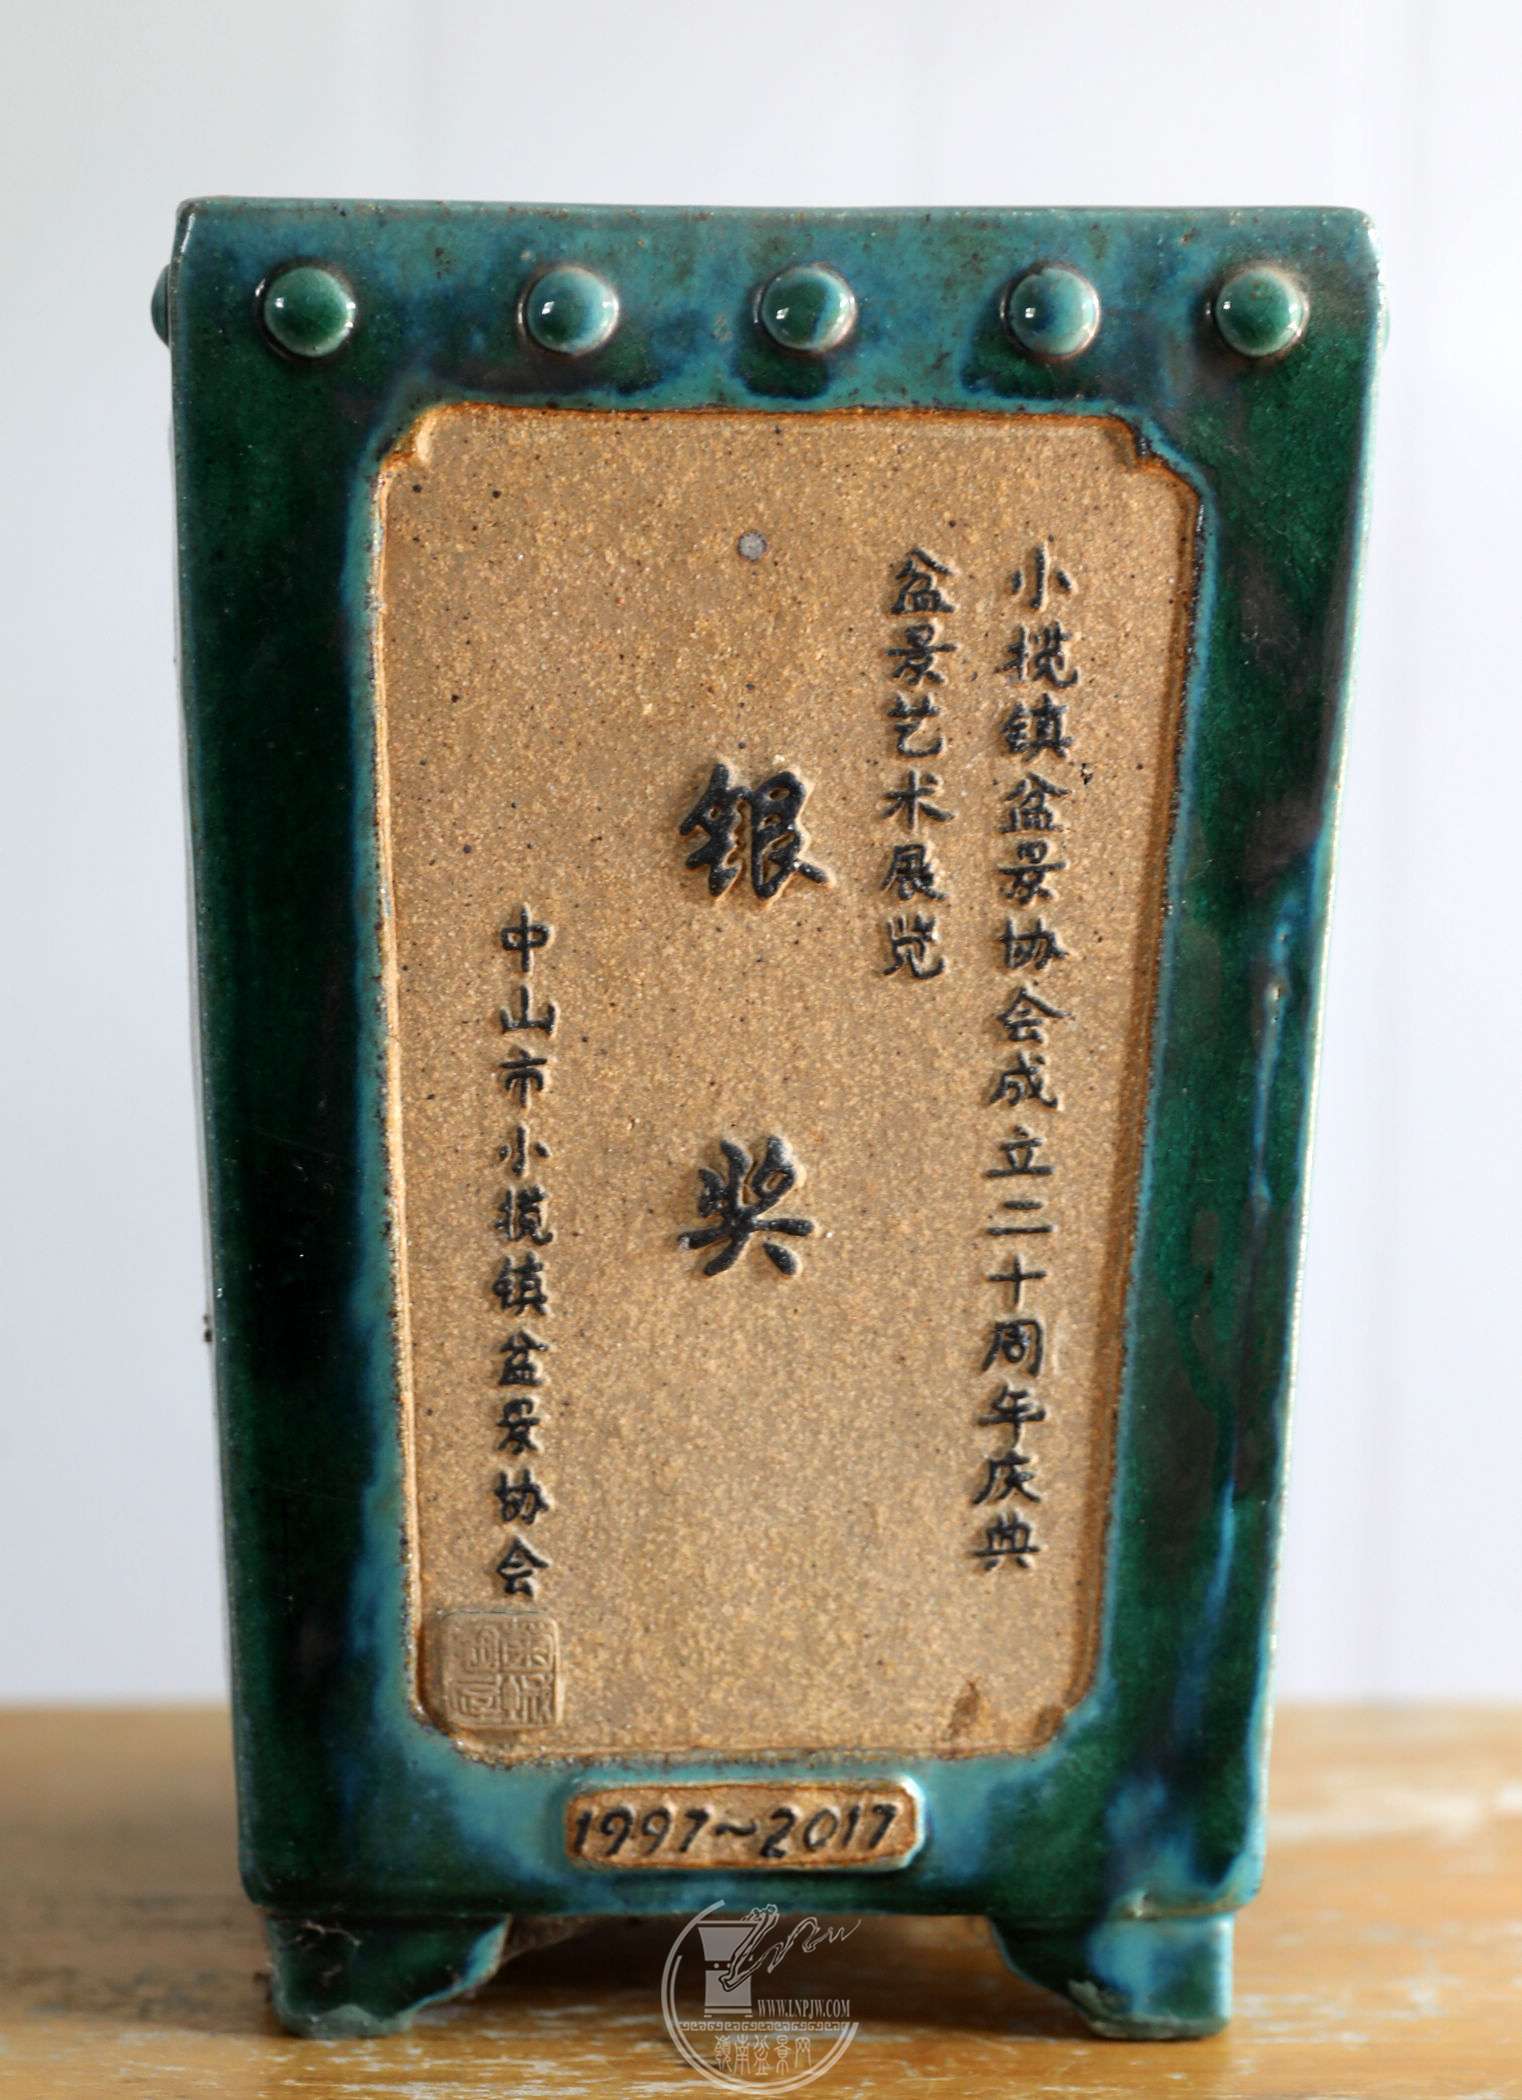 小揽镇盆景协会成立二十周年庆典
盆景艺术展览
银奖
中山市小揽镇盆景协会
1997~2017
WWW.LNPJW.COM
嶺南盆景网